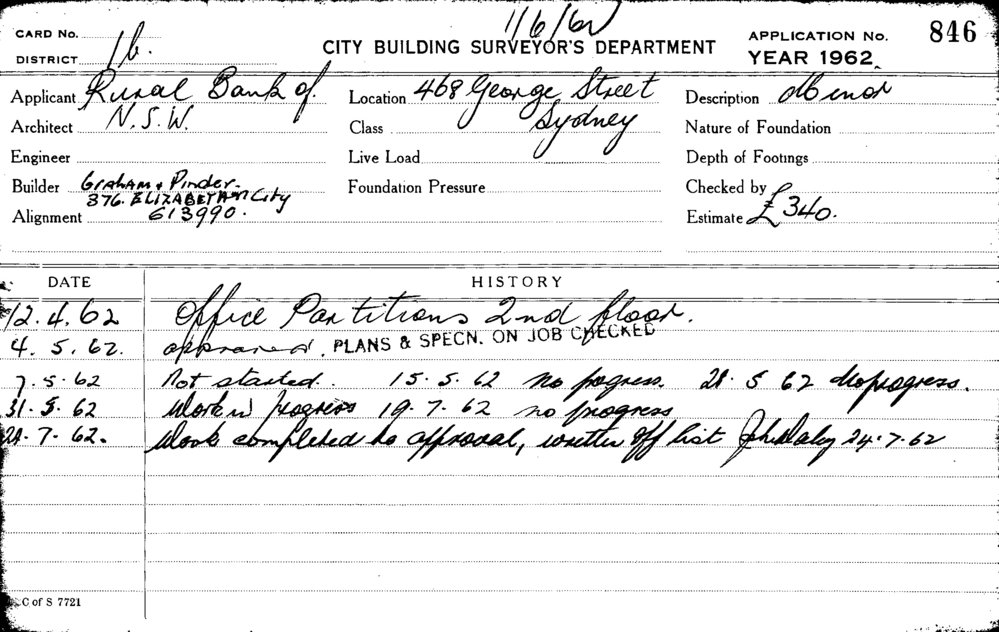 1/6/62
CARD No.
DISTRICT 16.
CITY BUILDING SURVEYOR'S DEPARTMENT
APPLICATION No. 846
YEAR 1962
Applicant Rural Bank of
Location 468 George Street
Description Minor
Architect N.S.W.
Class Sydney
Nature of Foundation
Engineer
Live Load
Depth of Footings
Builder Graham & Pinder.
376. ELIZABETH St City
Foundation Pressure
Checked by
Alignment 613990.
Estimate £340.
DATE HISTORY
12.4.62 Office Partitions 2nd floor.
4.5.62. approved. PLANS & SPECN. ON JOB CHECKED
7.5.62 Not started. 15.5.62 no progress. 28.5 62 No progress.
31.5.62 Work in progress 19.7.62 no progress
24.7.62. Work completed to approval, written off list 24.7.62
C of S 7721